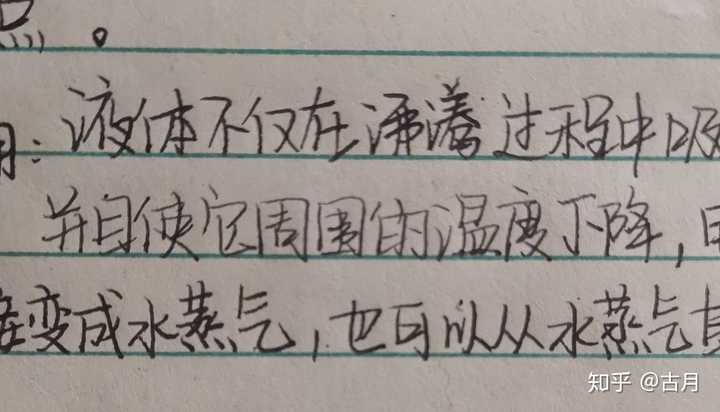 点。
用：液体不仅在沸腾过程中吸
并自使它周围的温度下降，由
变成水蒸气，也可以从水蒸气
知乎 @古月